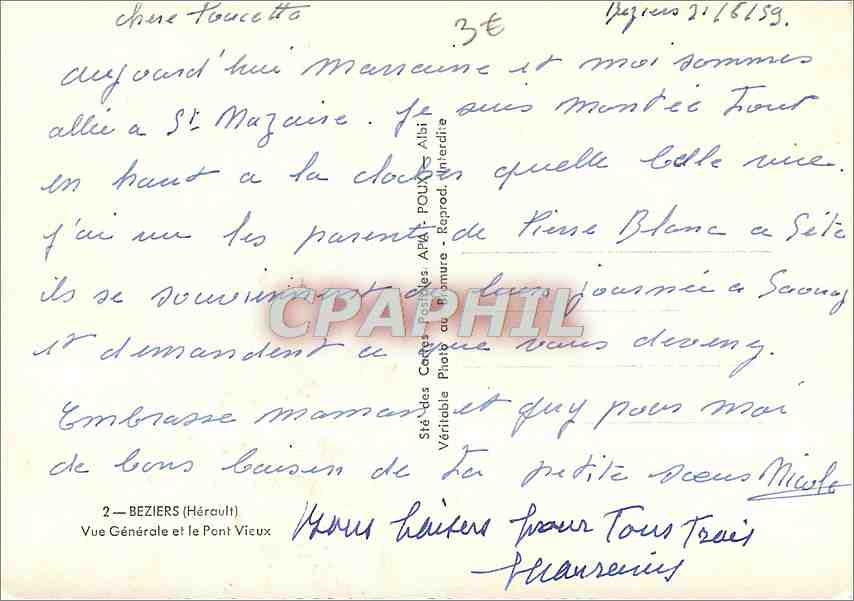 chere Poucette
3€
Beziers 21/8/59.
aujourd'hui Marraine et moi sommes
allée a St Nazaire. Je suis montée tout
en haut a la clocher quelle belle vue.
j'ai vu les parents de Pierre Blanc a Séte
ils se souviennent de leur journée a
et demandent ce que vous devenez.
Embrasse maman et guy pour moi
de bons baisers de ta petite soeur Nicole
Bons baisers pour Tous Trois
Marraine
2 — BEZIERS (Hérault)
Vue Générale et le Pont Vieux
Sté des Cartes Postales APA - POUX — Albi
Véritable Photo au Bromure - Reprod. Interdite
CPAPHIL